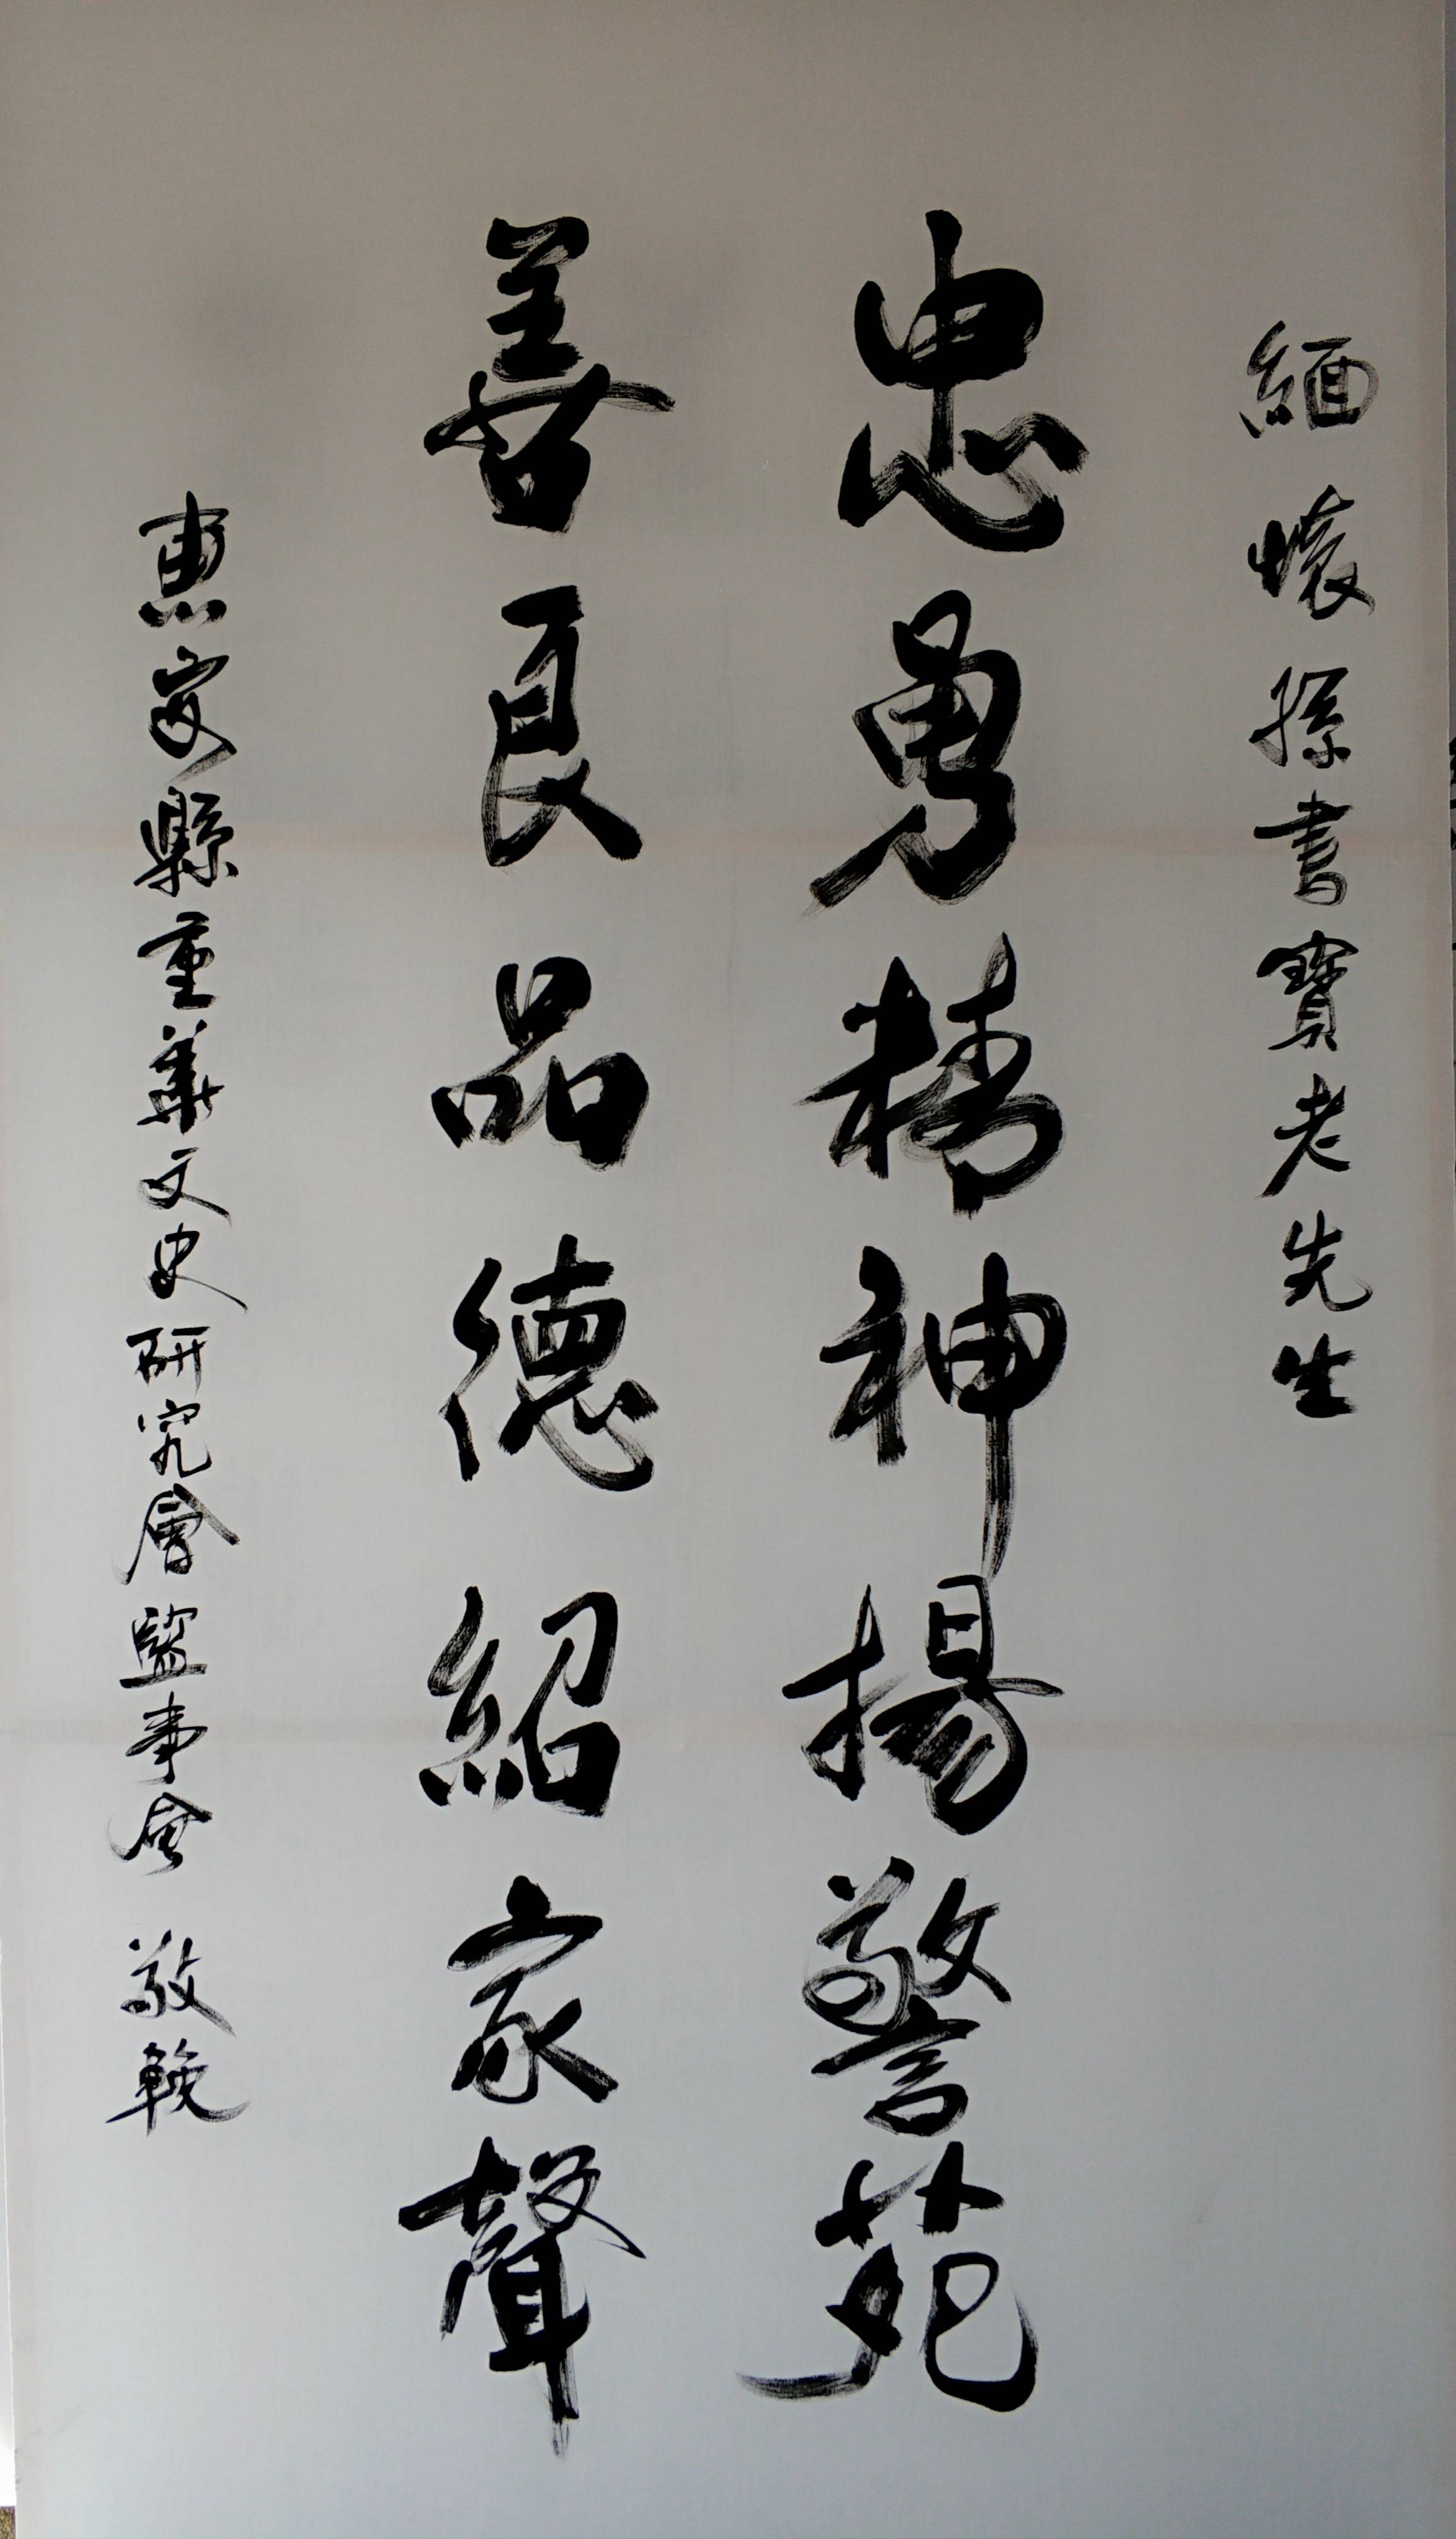 緬懷孫書寶老先生
忠勇精神揚警苑
善良品德紹家聲
惠安縣重華文史研究會監事會 敬輓